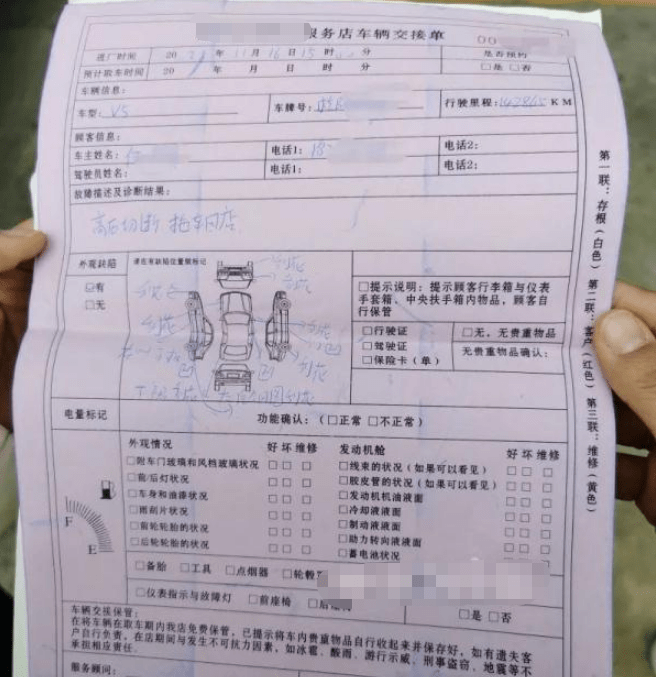 服务店车辆交接单
00
进厂时间 2021年11月16日15时 分 是否预约
预计取车时间 20 年 月 日 时 分 □是 □否
车辆信息:
车型: V5 车牌号: 行驶里程: 142865 KM
顾客信息:
车主姓名: 电话1: 18 电话2:
驾驶员姓名: 电话1: 电话2:
故障描述及诊断结果:
高压切断 拖车回店
外观缺陷 请在有缺陷位置做标记
□有
□无
划花
划花
划花
凹
凹
□提示说明:提示顾客行李箱与仪表
手套箱、中央扶手箱内物品,顾客自
行保管
□行驶证 □无,无贵重物品
□驾驶证 无贵重物品确认:
□保险卡(单)
电量标记 功能确认:(□正常 □不正常)
F
E
外观情况 好 坏 维修 发动机舱 好 坏 维修
□附车门玻璃和风档玻璃状况 □ □ □ □线束的状况(如果可以看见) □ □ □
□前/后灯状况 □ □ □ □胶皮管的状况(如果可以看见) □ □ □
□车身和油漆状况 □ □ □ □发动机机油液面 □ □ □
□雨刮片状况 □ □ □ □冷却液液面 □ □ □
□前轮轮胎的状况 □ □ □ □制动液液面 □ □ □
□后轮轮胎的状况 □ □ □ □助力转向液液面 □ □ □
□蓄电池状况 □ □ □
□备胎 □工具 □点烟器 □轮毂
□仪表指示与故障灯 □前座椅 □是 □否
车辆交接保管:
在将车辆在取车期内我店免费保管,已提示将车内贵重物品自行收起来并保存好,如有遗失客
户自行负责,在店期间与发生不可抗力因素,如冰雹、酸雨、游行示威、刑事盗窃、地震等不
承担相应责任.
服务顾问:
第一联:存根(白色) 第二联:客户(红色) 第三联:维修(黄色)